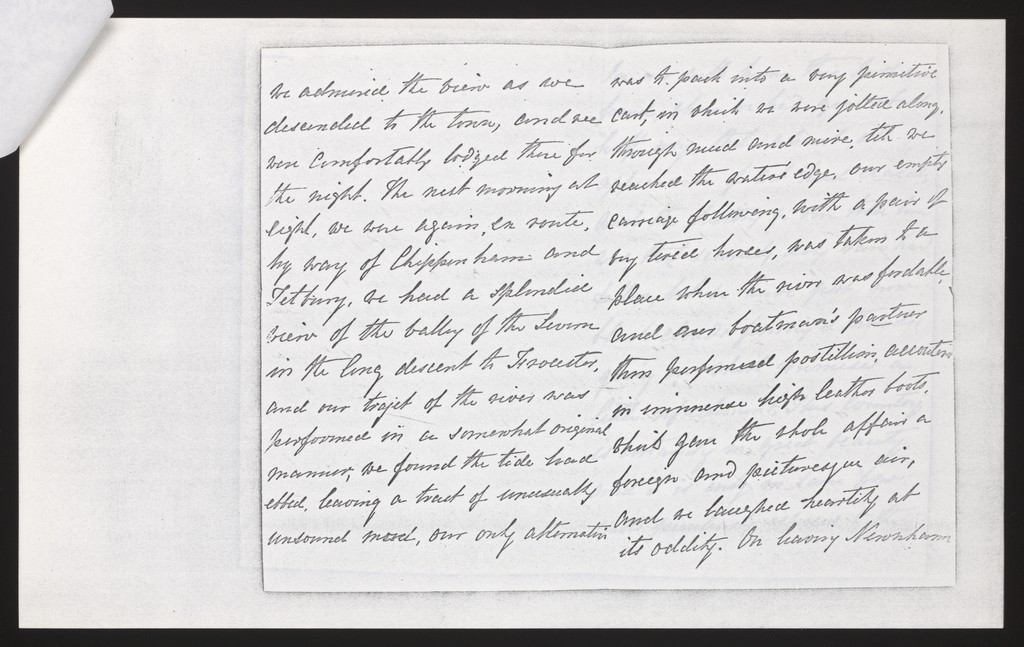 we admired the view as we
descended to the town, and we
were comfortably lodged there for
the night. The next morning at
eight, we were again, en route,
by way of Chippenham and
Tetbury, we had a splendid
view of the valley of the Severn
in the long descent to Frocester,
and our trajet of the river was
performed in a somewhat original
manner, we found the tide had
ebbed, leaving a tract of unusually
unsound mud, our only alternative
was to pack into a very primitive
cart, in which we were jolted along,
through mud and mire, till we
reached the water's edge, our empty
carriage following, with a pair of
very tired horses, was taken to a
place where the river was fordable,
and our boatman's partner
then performed postillion, accoutered
in immense high leather boots,
which gave the whole affair a
foreign and picturesque air,
and we laughed heartily at
its oddity. On leaving Newnham